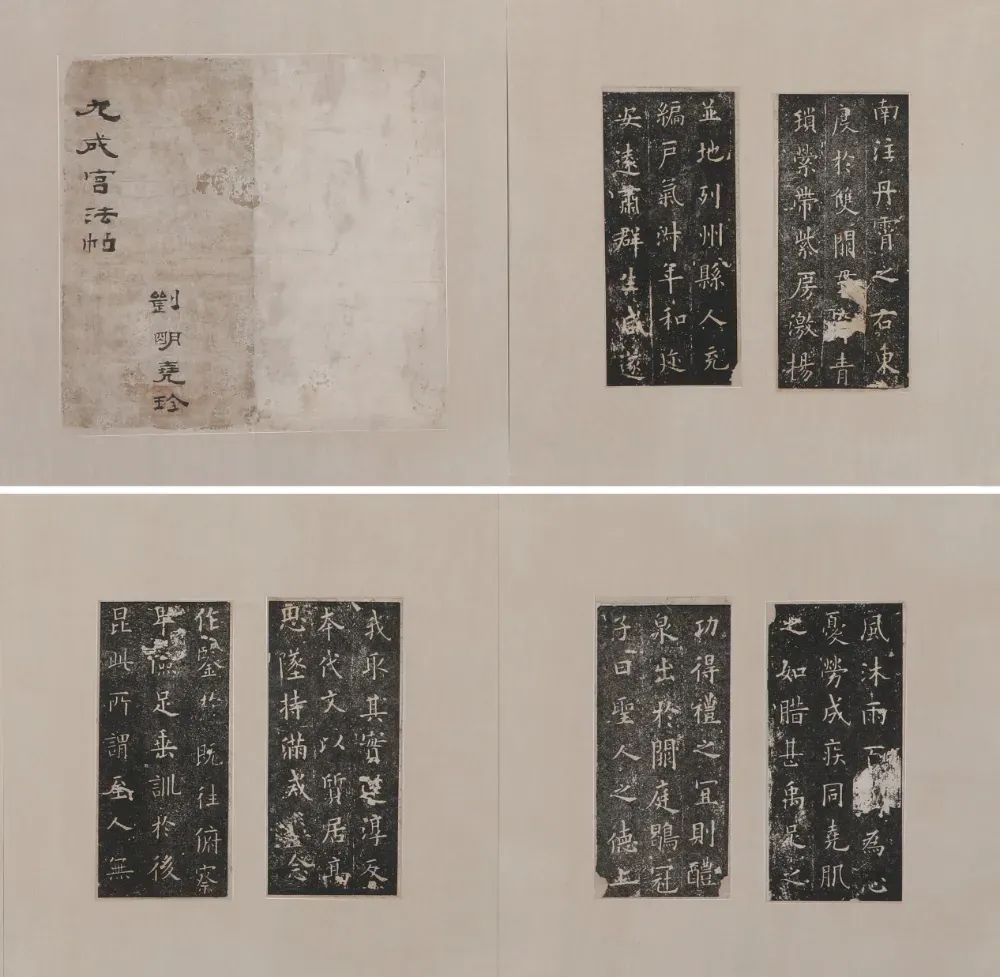 九成宮法帖
劉明堯珍
南注丹霄之右東
度於雙闕青
瑣縈帶紫房激揚
並地列州縣人充
編戶氣淑年和迩
安遠肅群生咸遂
風沐雨百為心
憂勞成疾同堯肌
之如腊甚禹足之
功得禮之宜則醴
泉出於闕庭鶡冠
子曰聖人之德上
我取其實還淳反
本代文以質居高
思墜持滿戒溢念
作鑒於既往俯察
卑儉足垂訓於後
昆此所謂至人無